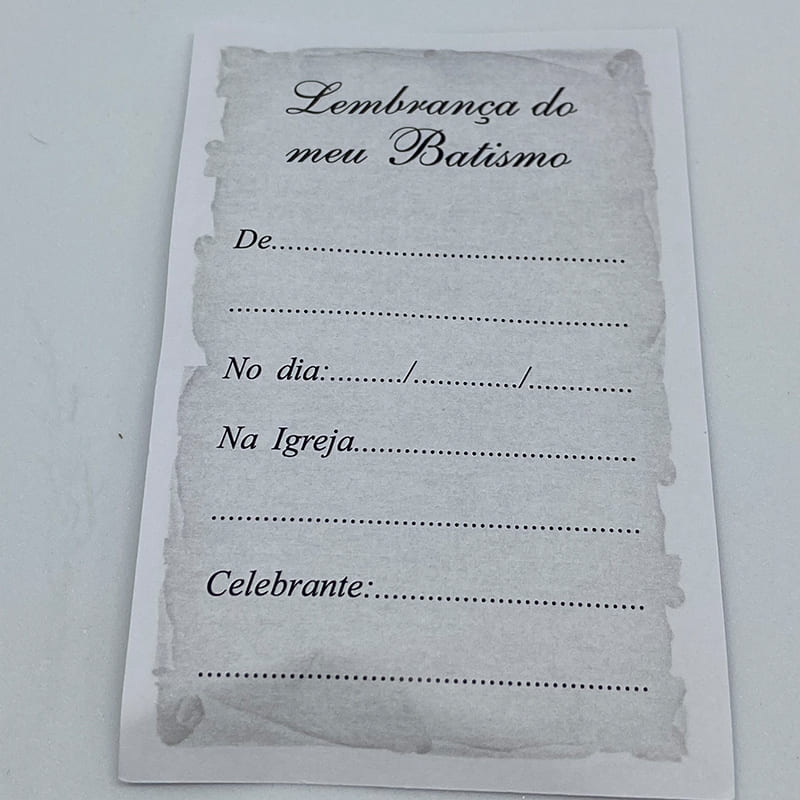 Lembrança do
meu Batismo
De............................................
..................................................
No dia:........./............./.............
Na Igreja...................................
.....................................................
Celebrante:..................................
........................................................